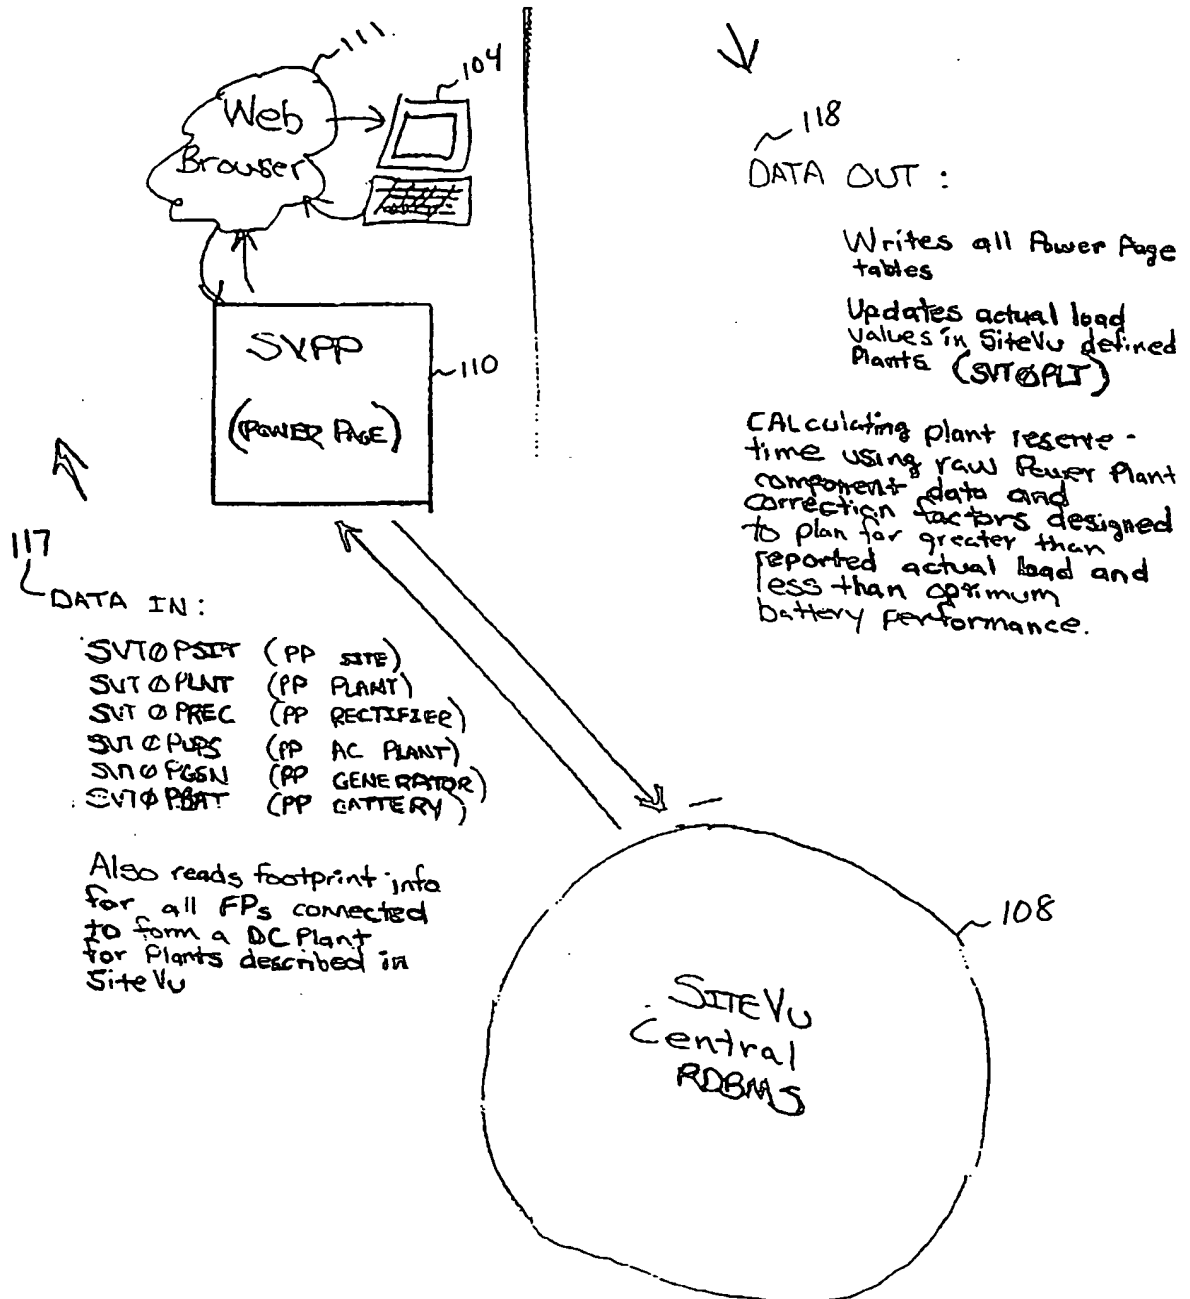 111.
104
Web
Browser
SVPP
(POWER PAGE)
110
117
DATA IN:
SVTØPSIT (PP SITE)
SVTØPLNT (PP PLANT)
SVTØPREC (PP RECTIFIER)
SVTØPUPS (PP AC PLANT)
SVTØPGEN (PP GENERATOR)
SVTØPBAT (PP BATTERY)
Also reads footprint info
for all FPs connected
to form a DC Plant
for Plants described in
SiteVu
118
DATA OUT:
Writes all Power Page
tables
Updates actual load
values in SiteVu defined
Plants (SVTØPLT)
CALculating plant reserve-
time using raw Power Plant
component data and
correction factors designed
to plan for greater than
reported actual load and
less than optimum
battery performance.
108
SITEVU
Central
RDBMS